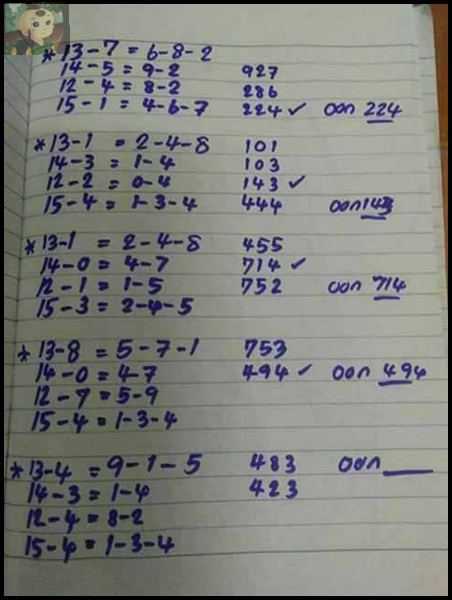 *13-7 = 6-8-2
14-5 = 9-2 927
12-4 = 8-2 286
15-1 = 4-6-7 224 ✓ ออก 224
*13-1 = 2-4-8 101
14-3 = 1-4 103
12-2 = 0-4 143 ✓
15-4 = 1-3-4 444 ออก 143
*13-1 = 2-4-8 455
14-0 = 4-7 714 ✓
12-1 = 1-5 752 ออก 714
15-3 = 2-4-5
*13-8 = 5-7-1 753
14-0 = 4-7 494 ✓ ออก 494
12-7 = 5-9
15-4 = 1-3-4
*13-4 = 9-1-5 483 ออก
14-3 = 1-4 423
12-4 = 8-2
15-4 = 1-3-4